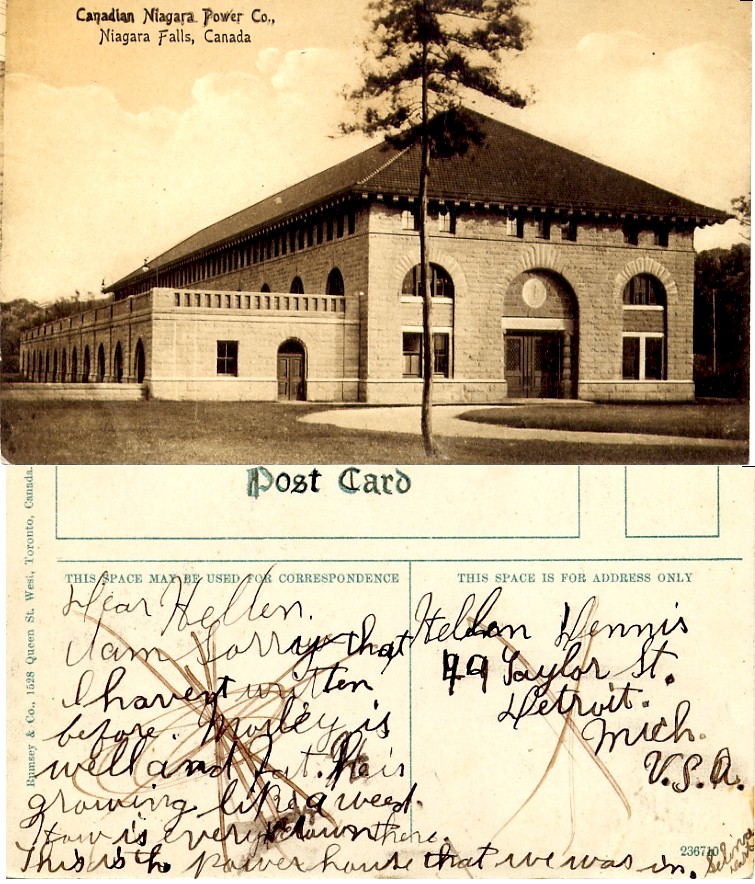 Canadian Niagara Power Co.,
Niagara Falls, Canada
Post Card
Rumsey & Co., 1528 Queen St. West, Toronto, Canada.
THIS SPACE MAY BE USED FOR CORRESPONDENCE
Dear Hellen.
I am Sorry that
I havent written
before. Morley is
well and fat. He is
growing like a weed.
How is every down there.
This is th powerhouse that we was in.
THIS SPACE IS FOR ADDRESS ONLY
Hellen Dennis
49 Taylor St.
Detroit.
Mich.
U.S.A.
236710